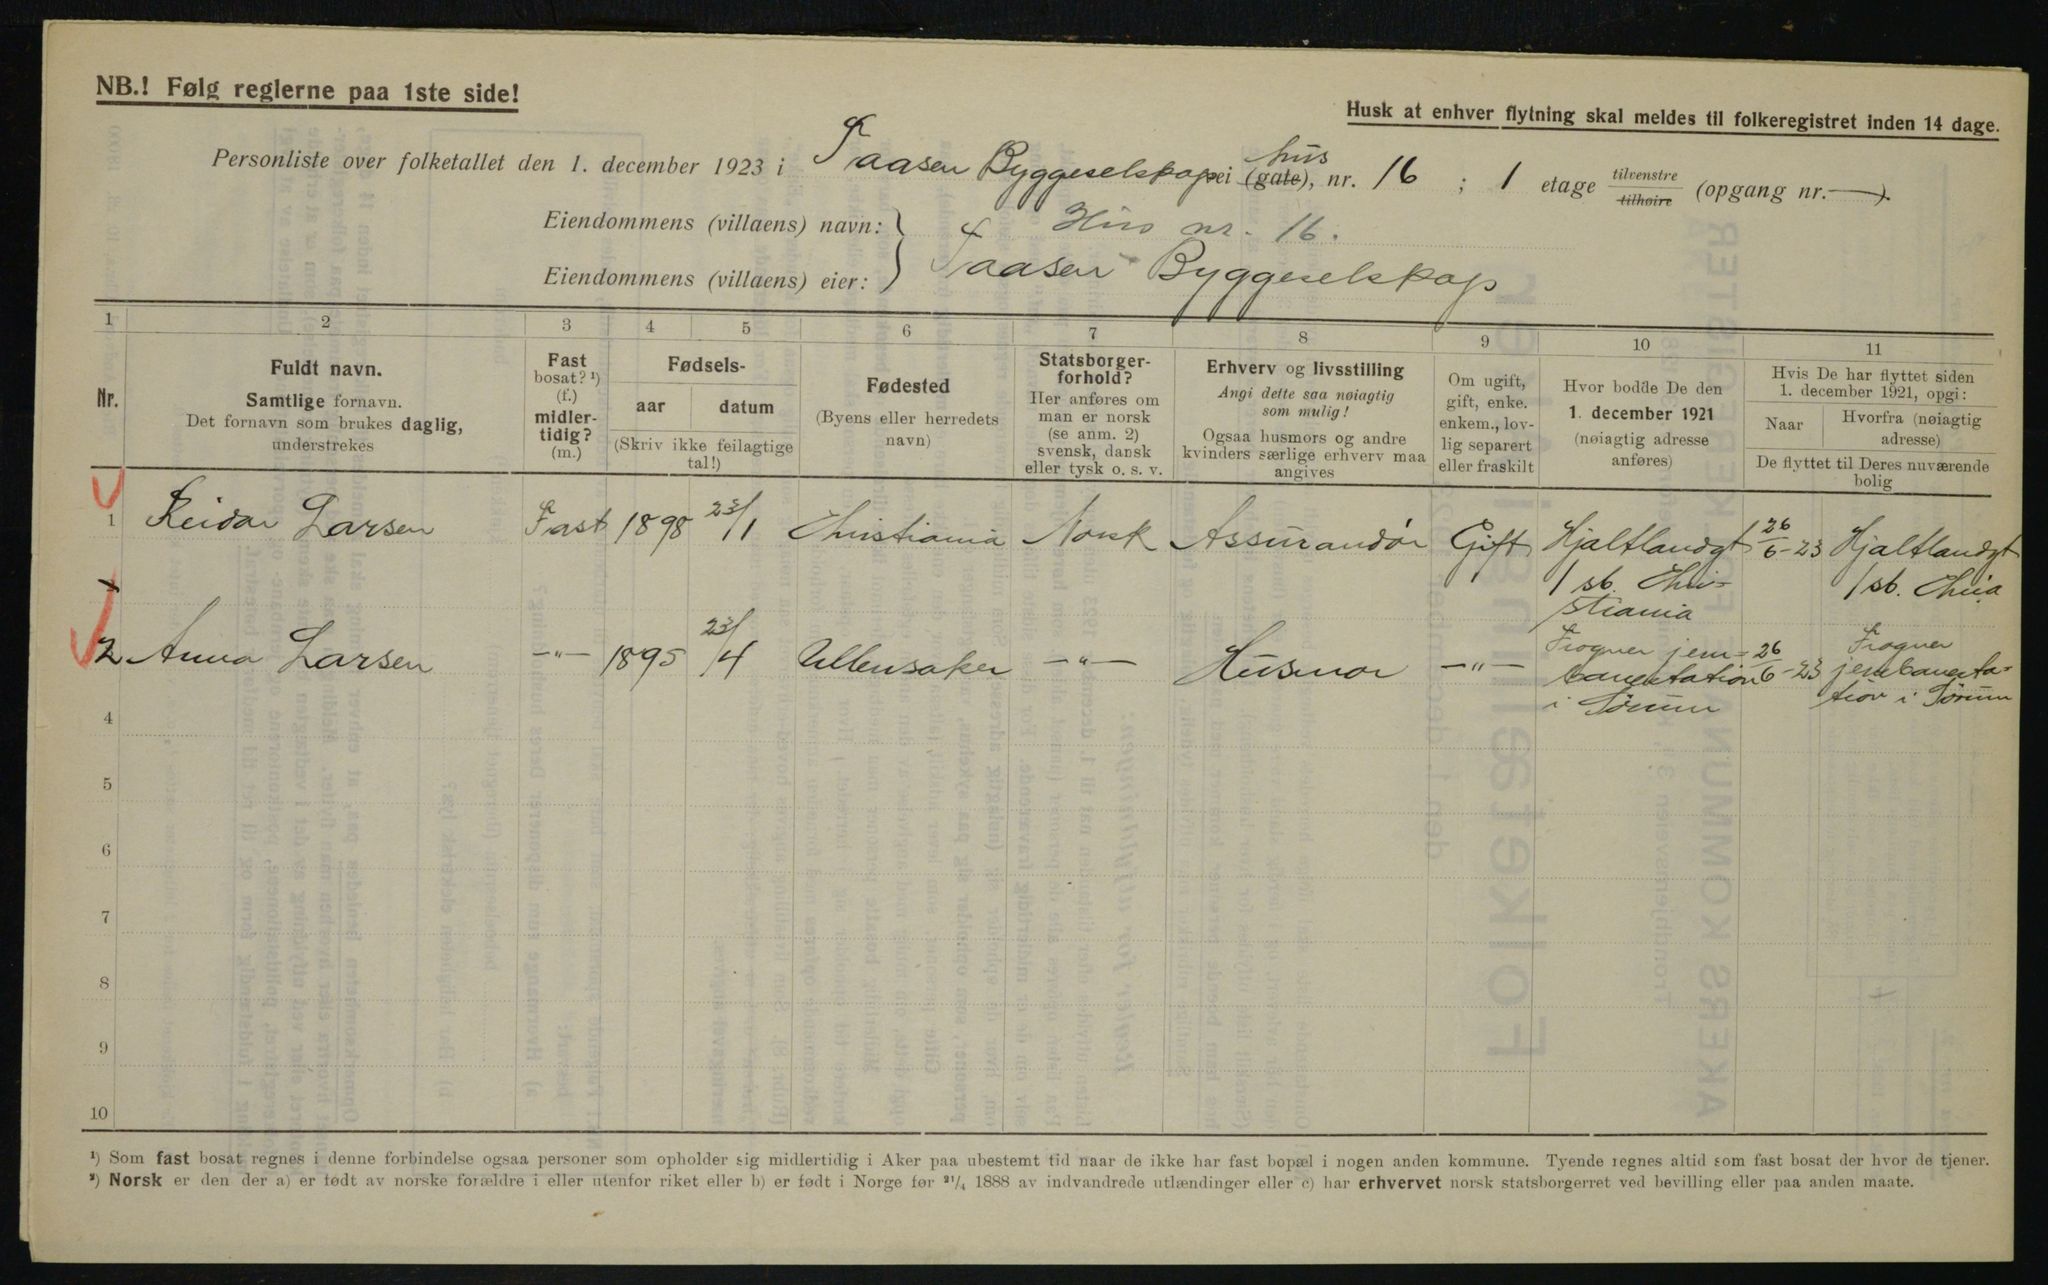 NB.! Følg reglerne paa 1ste side!
Husk at enhver flytning skal meldes til folkeregistret inden 14 dage.
Personliste over folketallet den 1. december 1923 i Taasen Byggeselskap vei (gate) hus, nr. 16 ; 1 etage tilvenstre tilhøire (opgang nr. —).
Eiendommens (villaens) navn: Hus nr. 16.
Eiendommens (villaens) eier: Taasen Byggeselskap
1 2 3 4 5 6 7 8 9 10 11
Nr.
Fuldt navn.
Samtlige fornavn.
Det fornavn som brukes daglig,
understrekes
Fast
bosat? ¹)
(f.)
midler-
tidig?
(m.)
Fødsels-
aar datum
(Skriv ikke feilagtige
tal!)
Fødested
(Byens eller herredets
navn)
Statsborger-
forhold?
Her anføres om
man er norsk
(se anm. 2)
svensk, dansk
eller tysk o. s. v.
Erhverv og livsstilling
Angi dette saa nøiagtig
som mulig!
Ogsaa husmors og andre
kvinders særlige erhverv maa
angives
Om ugift,
gift, enke.
enkem., lov-
lig separert
eller fraskilt
Hvor bodde De den
1. december 1921
(nøiagtig adresse
anføres)
Hvis De har flyttet siden
1. december 1921, opgi:
Naar Hvorfra (nøiagtig
adresse)
De flyttet til Deres nuværende
bolig
1 Reidar Larsen Fast 1898 23/1 Christiania Norsk Assurandør Gift Hjaltlandgt 26/6-23 Hjaltlandgt
1 sb. Chri- 1 sb. Chria
stiania
2 Anna Larsen —"— 1895 23/4 Ullensaker —"— Husmor —"— Frogner jern- 26/6-23 Frogner
banestation jernbanesta-
i Sørum tion i Sørum
4
5
6
7
8
9
10
¹) Som fast bosat regnes i denne forbindelse ogsaa personer som opholder sig midlertidig i Aker paa ubestemt tid naar de ikke har fast bopæl i nogen anden kommune. Tyende regnes altid som fast bosat der hvor de tjener.
²) Norsk er den der a) er født av norske forældre i eller utenfor riket eller b) er født i Norge før ²¹/₄ 1888 av indvandrede utlændinger eller c) har erhvervet norsk statsborgerret ved bevilling eller paa anden maate.